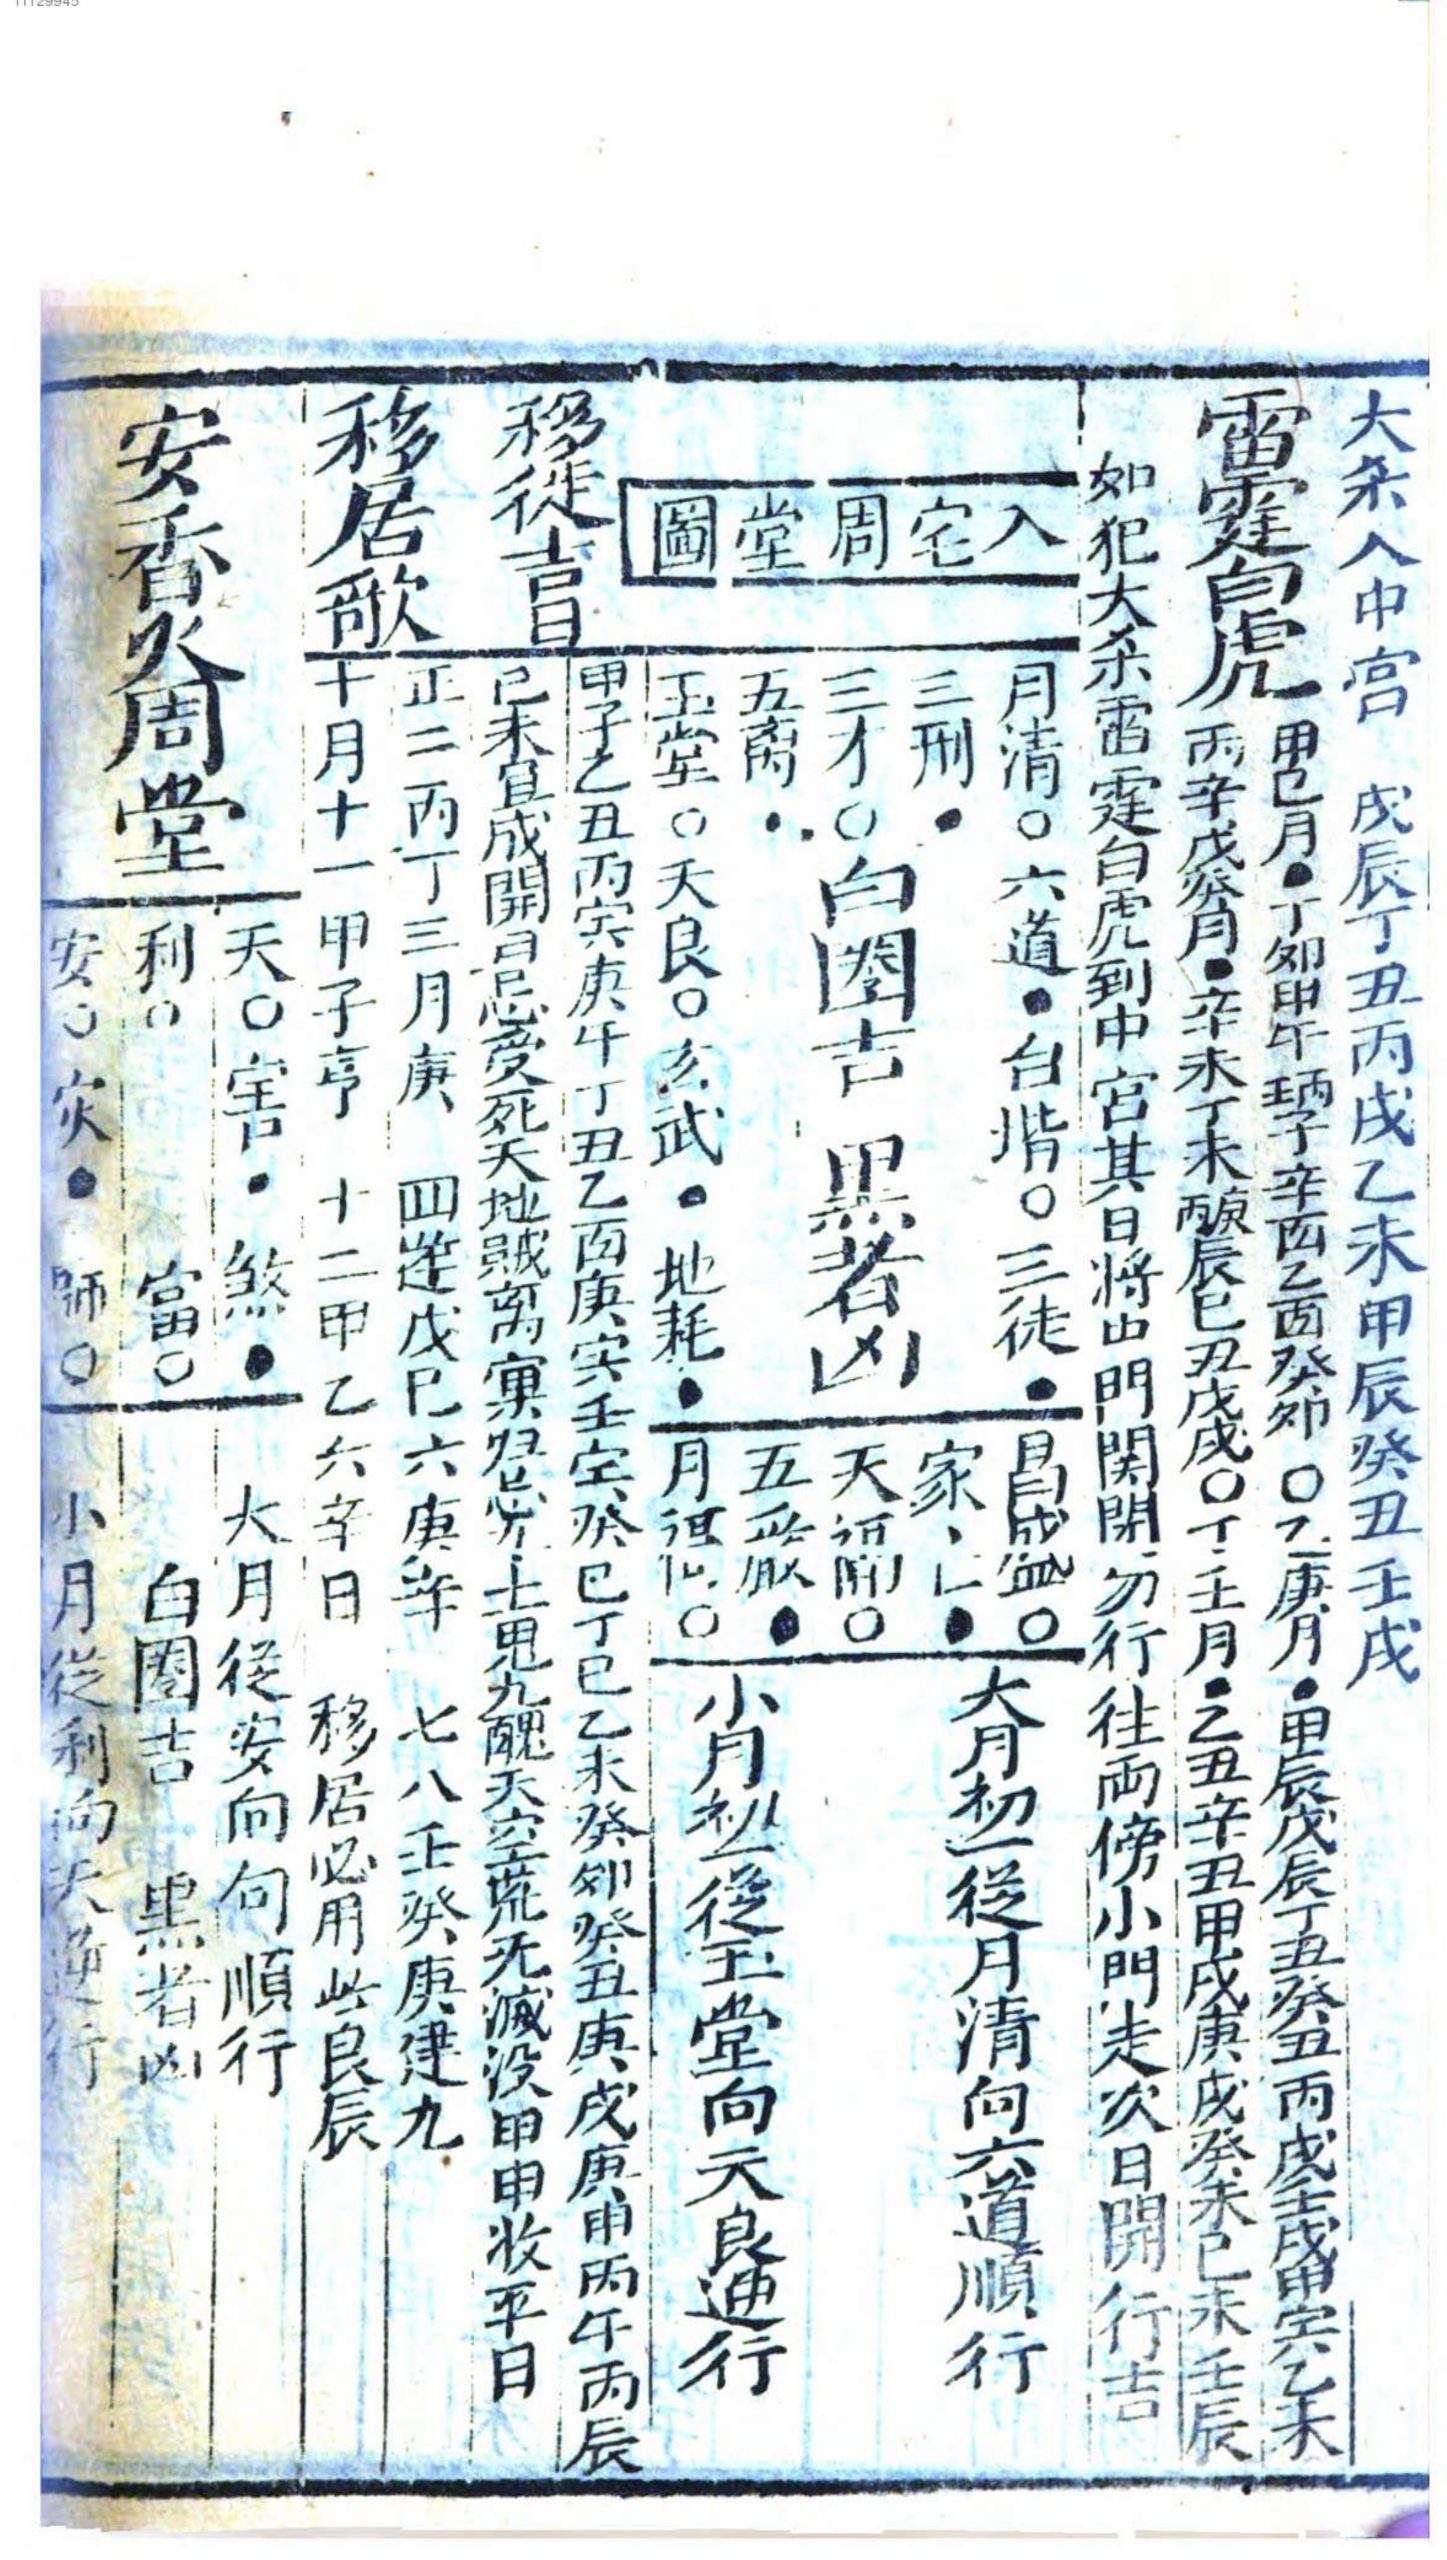 11129945
大杀入中宫 戊辰丁丑丙戌乙未甲辰癸丑壬戌
雷霆白虎
甲己月●丁卯甲午丙子辛酉乙酉癸卯〇乙庚月●甲辰戊辰丁丑癸丑丙戌壬戌甲寅乙未
丙辛戊癸月●辛未丁未丙辰己丑戊戌〇丁壬月●乙丑辛丑甲戌庚戌癸未己未壬辰
如犯大杀雷霆白虎到中宫其日將中門関閉勿行往両傍小門走次日開行吉
入宅周堂圖
月清〇六道●台堦〇三徒●昌盛〇
三刑●
三才〇
五离●
玉堂〇天良〇玄武●地耗●
白圈吉 黒者凶
家
天
五
月
大月初一從月清向六道順行
小月初一從玉堂向天良逆行
移徙吉日
甲子乙丑丙寅庚午丁丑乙酉庚寅壬寅癸巳丁巳乙未癸卯癸丑庚戌庚申丙午丙辰
己未宜成開日忌受死天地賊离窠归忌
土鬼九醜天空荒无滅没甲申收平日
移居歌
正二丙丁三月庚 四逆戊巳六庚辛 七八壬癸庚建九
十月十一甲子亨 十二甲乙六辛日 移居必用此良辰
安香火周堂
天〇害●煞●
利〇 富〇
安〇灾●師〇
大月從安向句順行
白圈吉 黒者凶
小月從利向天逆行